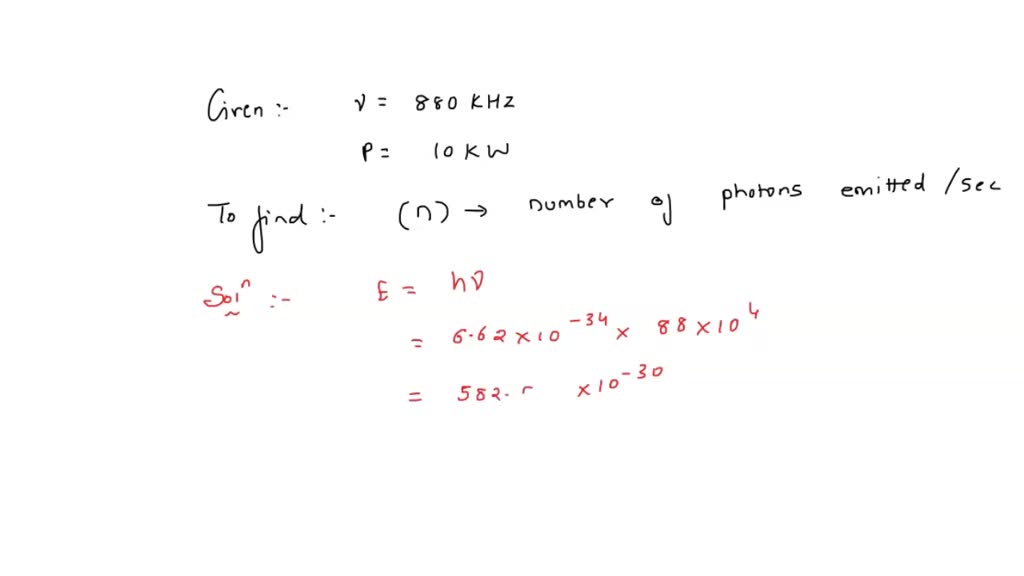 Given :- ν = 880 KHZ
P = 10 KW
To find :- (n) → number of photons emitted /sec
Solⁿ :- E = hν
= 6.62 × 10⁻³⁴ × 88 × 10⁴
= 582. × 10⁻³⁰